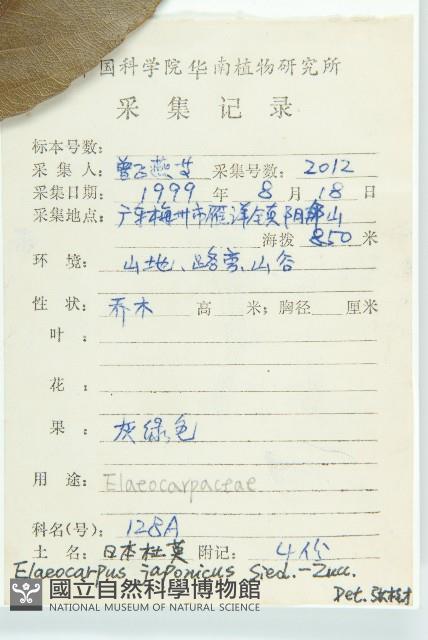 中国科学院华南植物研究所
采集记录
标本号数:
采集人: 曾飞燕等 采集号数: 2012
采集日期: 1999 年 8 月 18 日
采集地点: 广东梅州市雁洋镇阴那山
海拨 850 米
环 境: 山地、路旁、山谷
性 状: 乔木 高 米; 胸径 厘米
叶:
花:
果: 灰绿色
用 途: Elaeocarpaceae
科名(号): 128A
土 名: 日本杜英 附记: 4份
Elaeocarpus japonicus Sied.-Zucc.
Det.
國立自然科學博物館
NATIONAL MUSEUM OF NATURAL SCIENCE